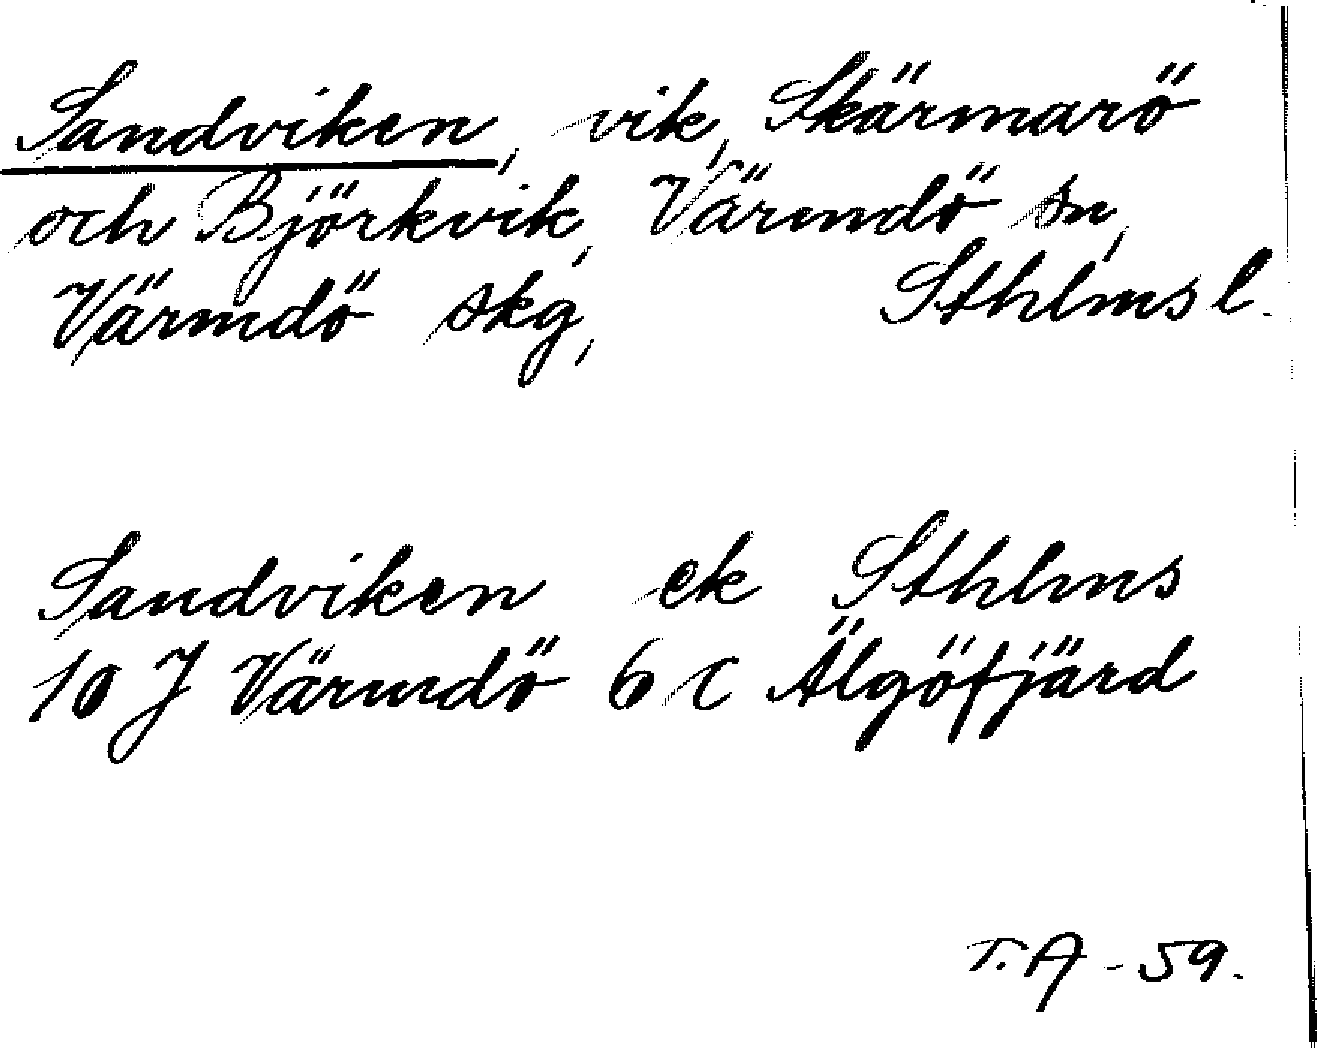 Sandviken, vik, Skärmarö
och Björkvik, Värmdö sn,
Värmdö skg, Sthlms l.
Sandviken ek Sthlms
10 J Värmdö 6 c Älgöfjärd
T. A - 59.